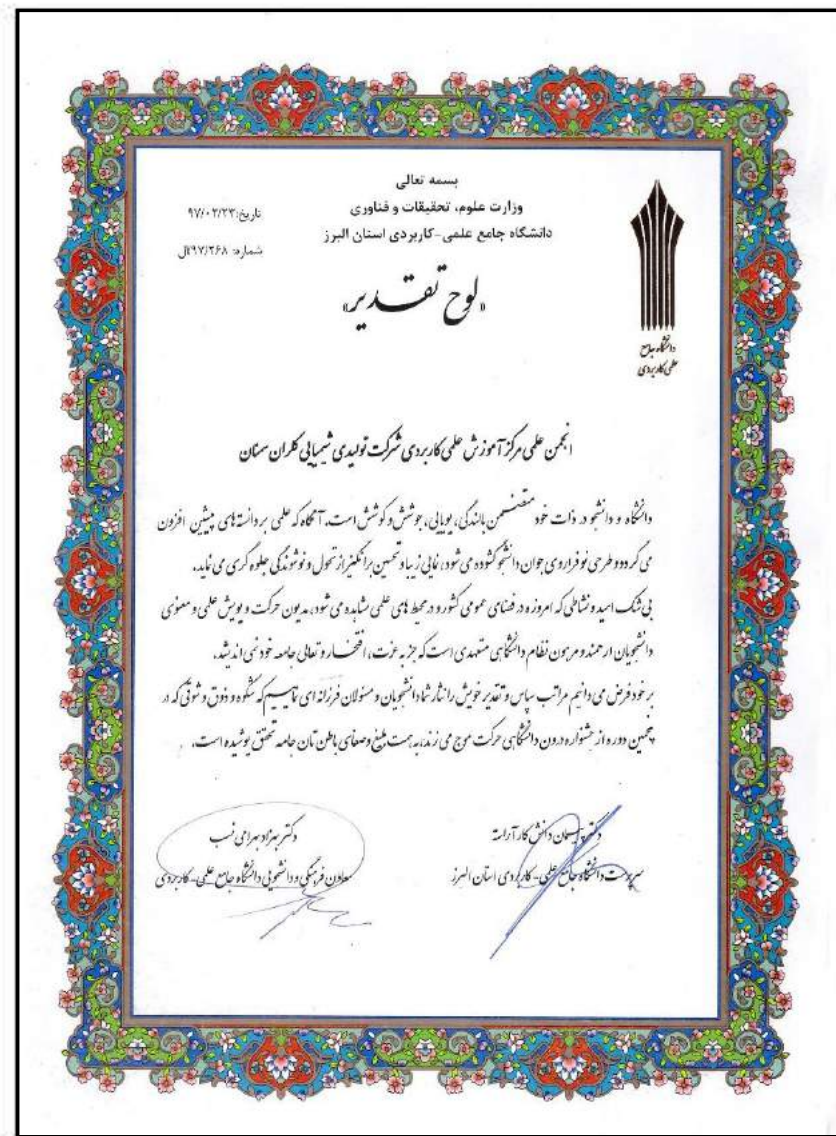 بسمه تعالی
وزارت علوم، تحقیقات و فناوری
دانشگاه جامع علمی-کاربردی استان البرز
تاریخ:۹۷/۰۲/۲۳
شماره: ۹۷/۲۶۸/آل
«لوح تقدیر»
دانشگاه جامع
علمی کاربردی
انجمن علمی مرکز آموزش علمی کاربردی شرکت تولیدی شیمیایی کلران سمنان
دانشگاه و دانشجو در ذات خود متضمن بالندگی، پویایی، جوشش و کوشش است. آنگاه که علمی بر دانسته های پیشین افزون
می گردد و طرحی نو فراروی جوان دانشجو گشوده می شود، نمایی زیبا و تحسین برانگیز از تحول و نوشوندگی جلوه گری می نماید.
بی شک امید و نشاطی که امروزه در فضای عمومی کشور و در محیط های علمی مشاهده می شود، مدیون حرکت و پویش علمی و معنوی
دانشجویان ارجمند و مرهون نظام دانشگاهی متعهدی است که جز به عزت، افتخار و تعالی جامعه خود نمی اندیشد.
بر خود فرض می دانیم مراتب سپاس و تقدیر خویش را نثار شما دانشجویان و مسئولان فرزانه ای نماییم که شکوه و ذوق و شوقی که در
پنجمین دوره از جشنواره درون دانشگاهی حرکت موج می زند، به همت بلیغ و صفای باطن تان جامه تحقق پوشیده است.
دکتر پیمان دانش کار آراسته
سرپرست دانشگاه جامع علمی - کاربردی استان البرز
دکتر بهزاد بهرامی نسب
معاون فرهنگی و دانشجویی دانشگاه جامع علمی - کاربردی